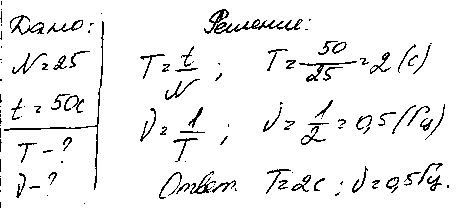 Дано:
N = 25
t = 50с
T - ?
ν - ?
Решение:
T = t/N ; T = 50/25 = 2 (с)
ν = 1/T ; ν = 1/2 = 0,5 (Гц)
Ответ T = 2с ; ν = 0,5 Гц.